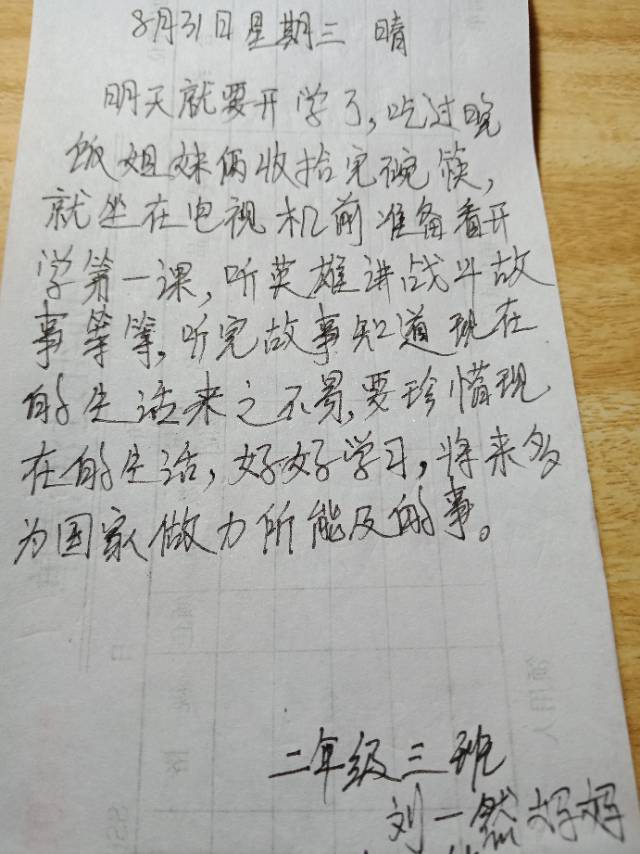 8月31日星期三 晴
明天就要开学了,吃过晚
饭姐妹俩收拾完碗筷,
就坐在电视机前准备看开
学第一课,听英雄讲战斗故
事等等,听完故事知道现在
的生活来之不易,要珍惜现
在的生活,好好学习,将来多
为国家做力所能及的事。
二年级三班
刘一然妈妈